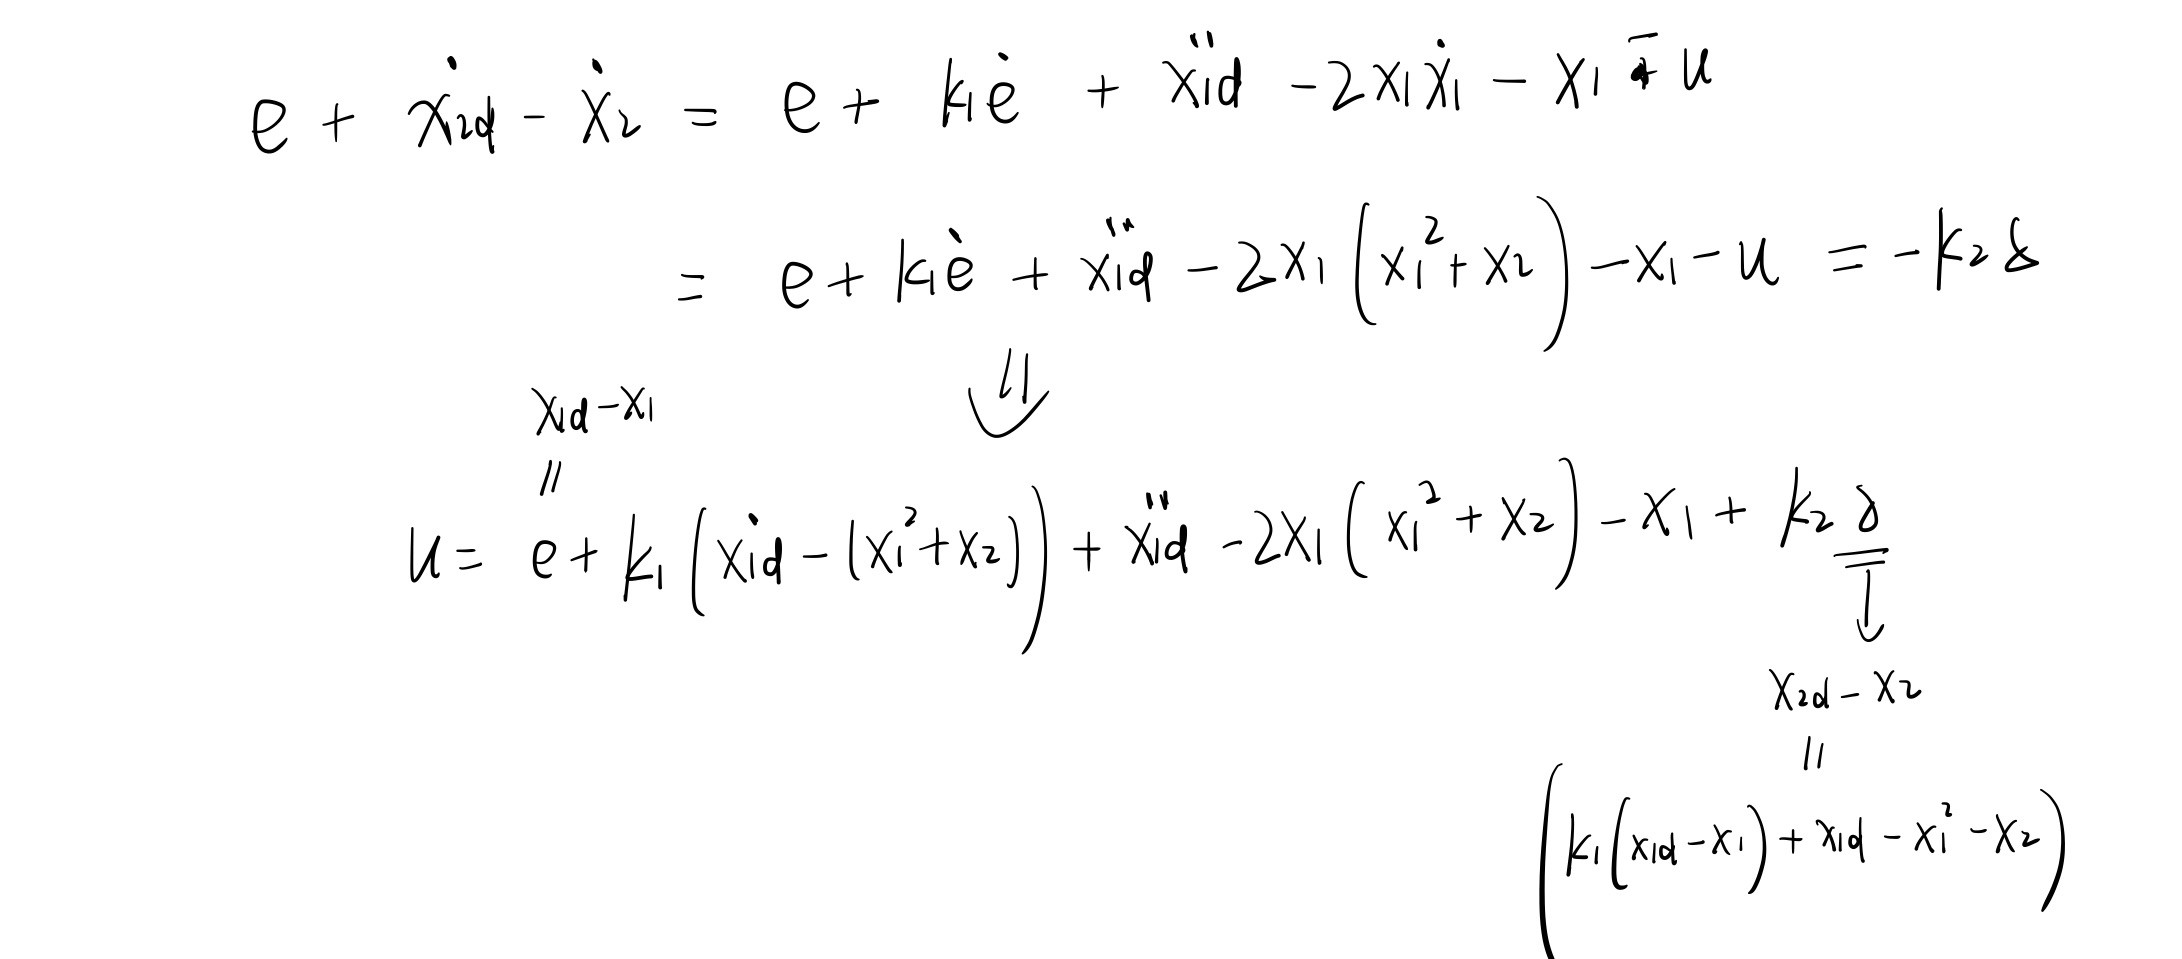 e + ẋ₂d - ẋ₂ = e + k₁ė + ẍ₁d - 2x₁ẋ₁ - x₁ - u
= e + k₁ė + ẍ₁d - 2x₁(x₁² + x₂) - x₁ - u = -k₂δ
⇓
x₁d - x₁
=
u = e + k₁(ẋ₁d - (x₁² + x₂)) + ẍ₁d - 2x₁(x₁² + x₂) - x₁ + k₂δ
↓
x₂d - x₂
=
(k₁(x₁d - x₁) + x₁d - x₁² - x₂)